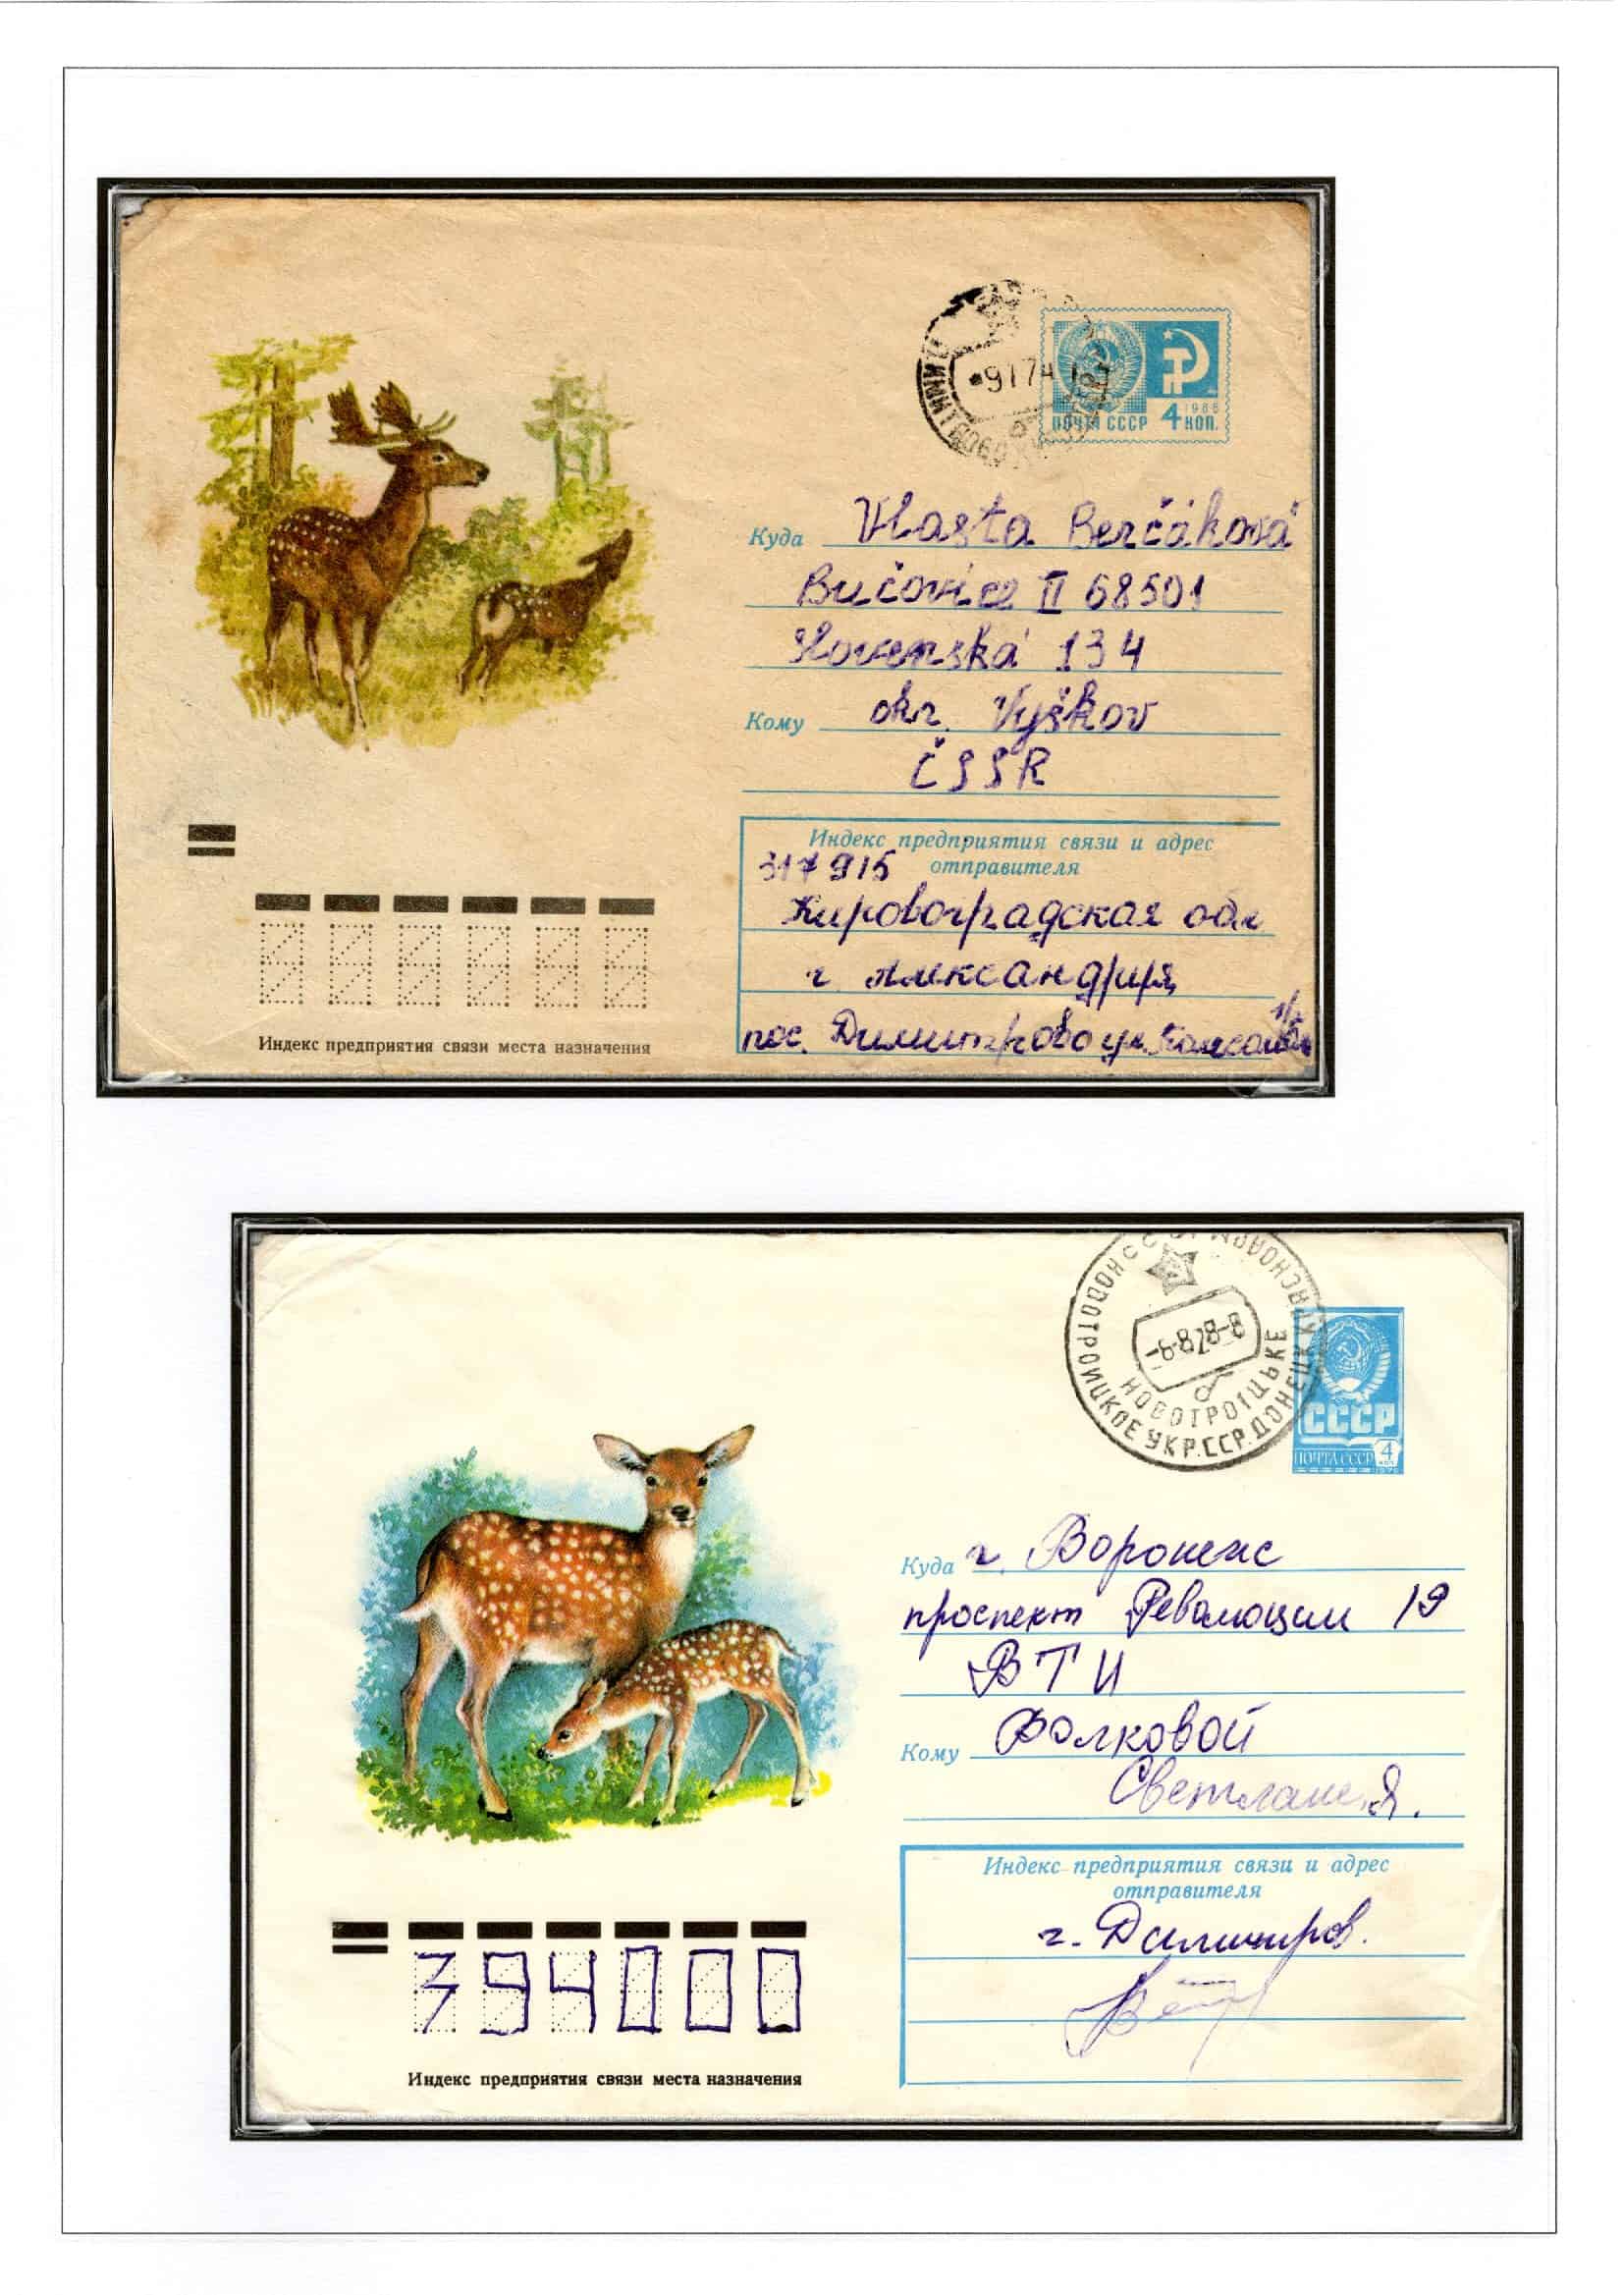 9 1 74
1966
ПОЧТА СССР 4 КОП.
Куда Vlasta Berčáková
Bučovice II 68501
Slovenská 134
Кому okr. Vyškov
ČSSR
Индекс предприятия связи и адрес
отправителя
317915
Кировоградская обл
г Александрия
пос. Димитрово ул.
Индекс предприятия связи места назначения
НОВОТРОИЦКОЕ УКР.ССР.ДОНЕЦК
НОВОТРОIЦЬКЕ
СССР
ПОЧТА СССР 4
Куда г. Воронеж
проспект Революции 19
ВТИ
Кому Волковой
Светлане Я.
Индекс предприятия связи и адрес
отправителя
г. Димитров.
394000
Индекс предприятия связи места назначения